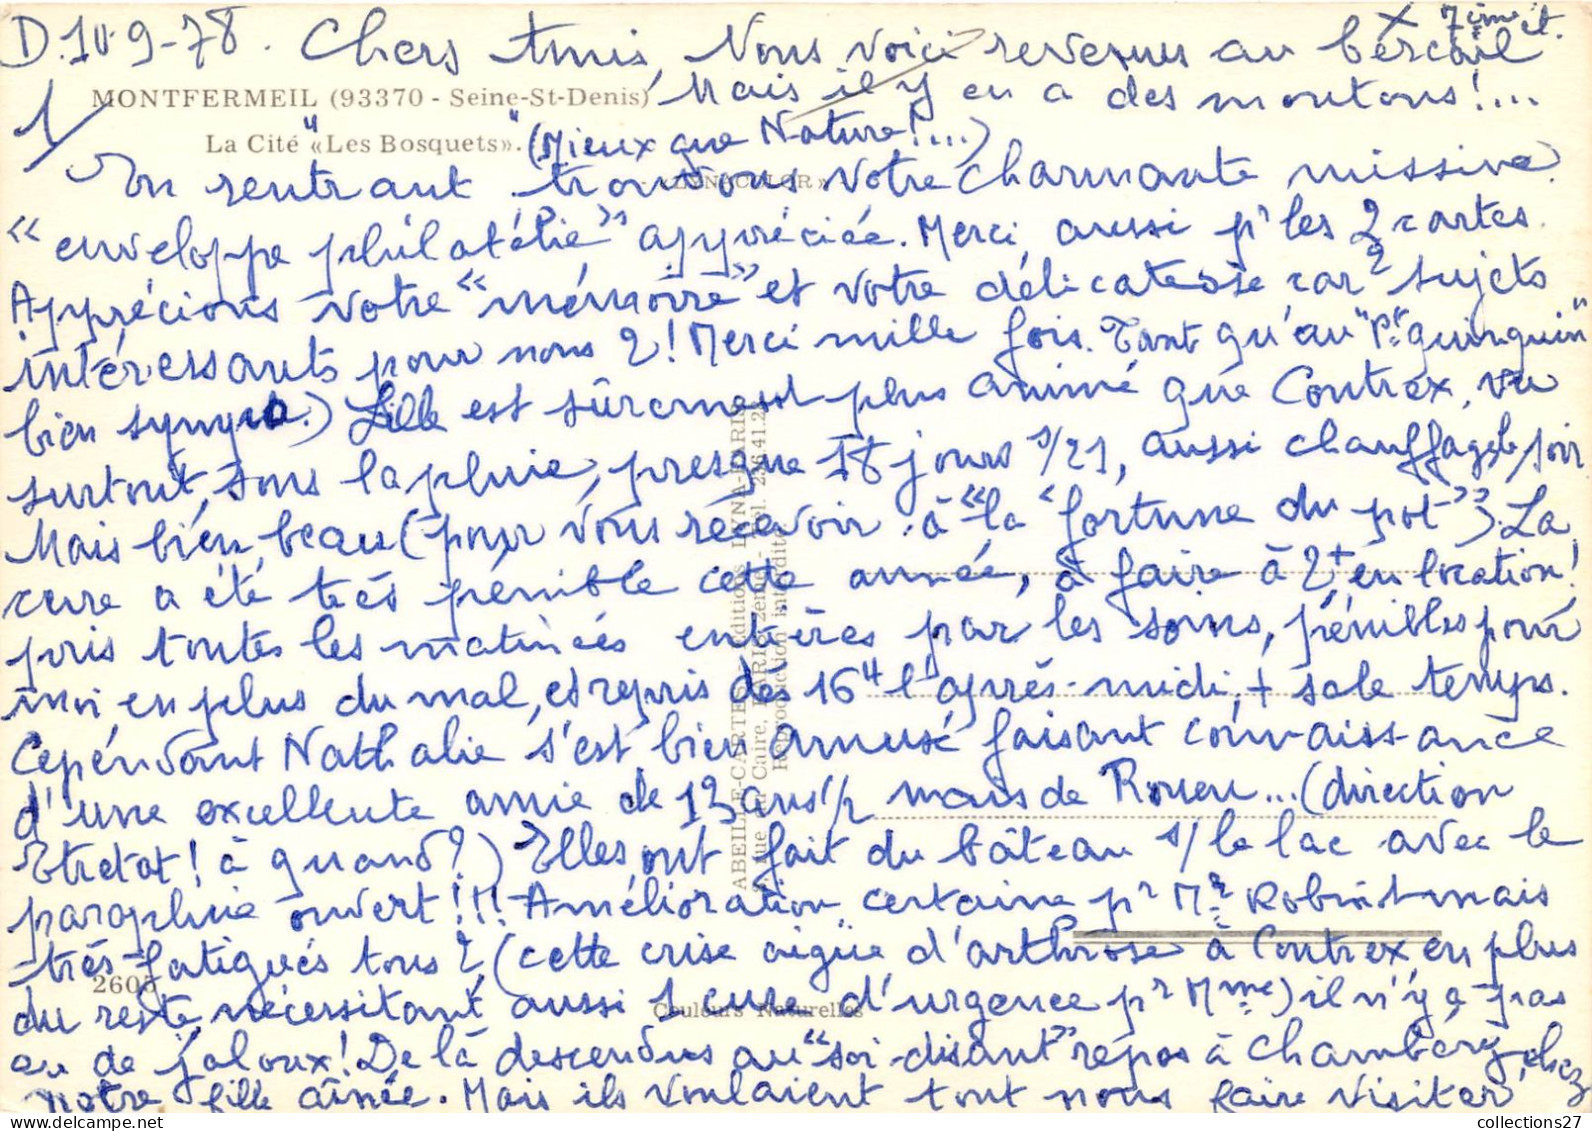 D. 10-9-78. Chers Amis, Nous voici revenus au bercail
X 7ème it.
MONTFERMEIL (93370 - Seine-St-Denis) Mais il y en a des moutons!...
1/
La Cité "«Les Bosquets»". (Mieux que Nature!...)
En rentrant trouvons votre charmante missive.
«enveloppe philatélie» appréciée. Merci, aussi pr les 2 cartes.
Apprécions votre «mémoire» et votre délicatesse car 2 sujets
intéressants pour nous 2! Merci mille fois. Tant qu'au "Pt quinquin"
bien sympa.) Lille est sûrement plus animé que Contrex, vu
surtout, sous la pluie, presque 18 jours s/21, aussi chauffage le soir
Mais bien beau (pour vous recevoir à «la "fortune du pot"») La
cure a été très pénible cette année, à faire à 2, + en location!
pris toutes les matinées entières par les soins, pénibles pour
moi en plus du mal, et repris dès 16H l'après-midi, + sale temps.
Cependant Nathalie s'est bien amusé faisant connaissance
d'une excellente amie de 13 ans 1/2 mais de Rouen... (direction
Etretat! à quand?) Elles ont fait du bâteau s/ le lac avec le
parapluie ouvert!!! Amélioration certaine pr Mr Robin mais
très fatigués tous 2, (cette crise aigüe d'arthrose à Contrex en plus
2605
du reste, nécessitant aussi 1 cure d'urgence pr Mme) il n'y a pas
Couleurs Naturelles
eu de jaloux! De là descendus au "soi-disant" repos à Chambéry chez
notre fille aînée. Mais ils voulaient tout nous faire visiter
ABEILLE-CARTES - Editions LYNA-PARIS
Rue du Caire, PARIS 2ème - Tél. 236.41.2
Reproduction interdite
collections27